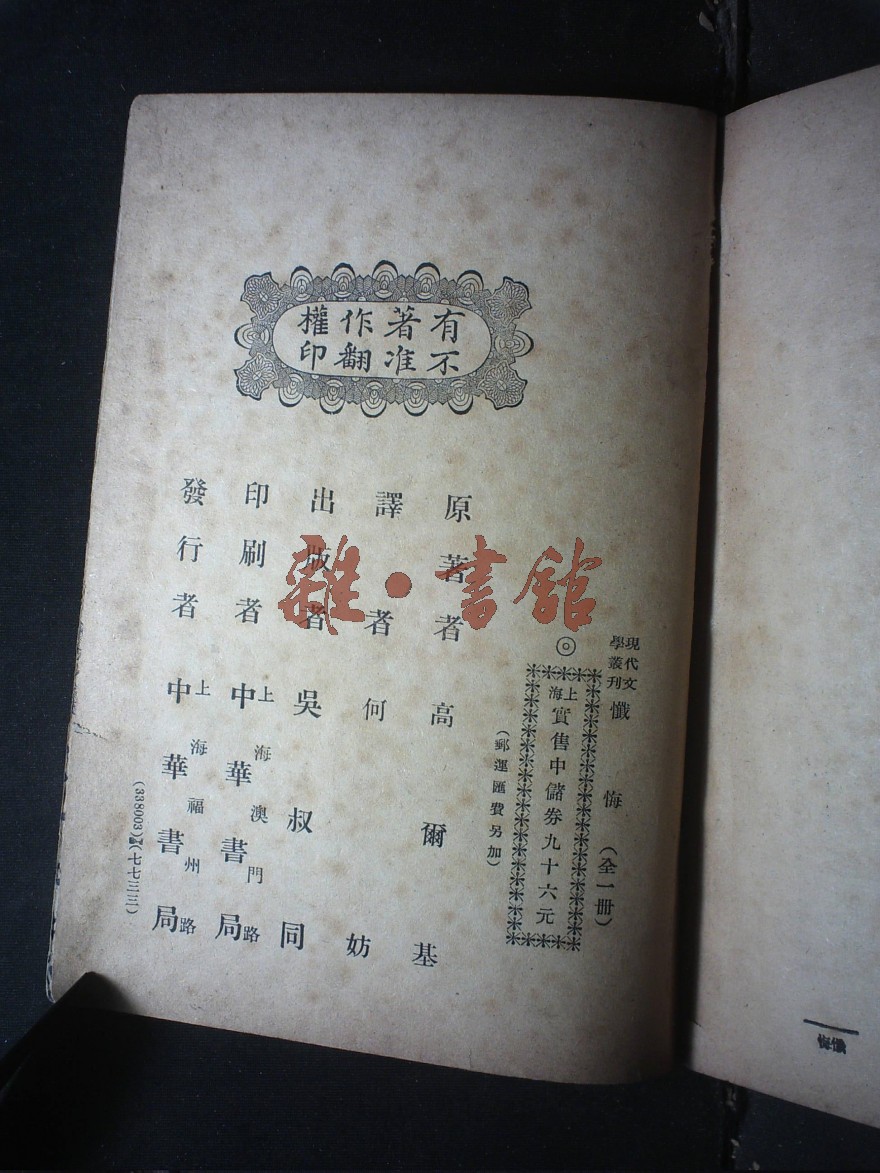 有著作權
不准翻印
現代文
學叢刊
懺悔(全一冊)
◎
上海實售中儲券九十六元
(郵運匯費另加)
原著者 高爾基
譯者 何妨
出版者 吳叔同
印刷者 上海澳門路 中華書局
發行者 上海福州路 中華書局
(338003)(七七三三)
懺悔
雜·書館